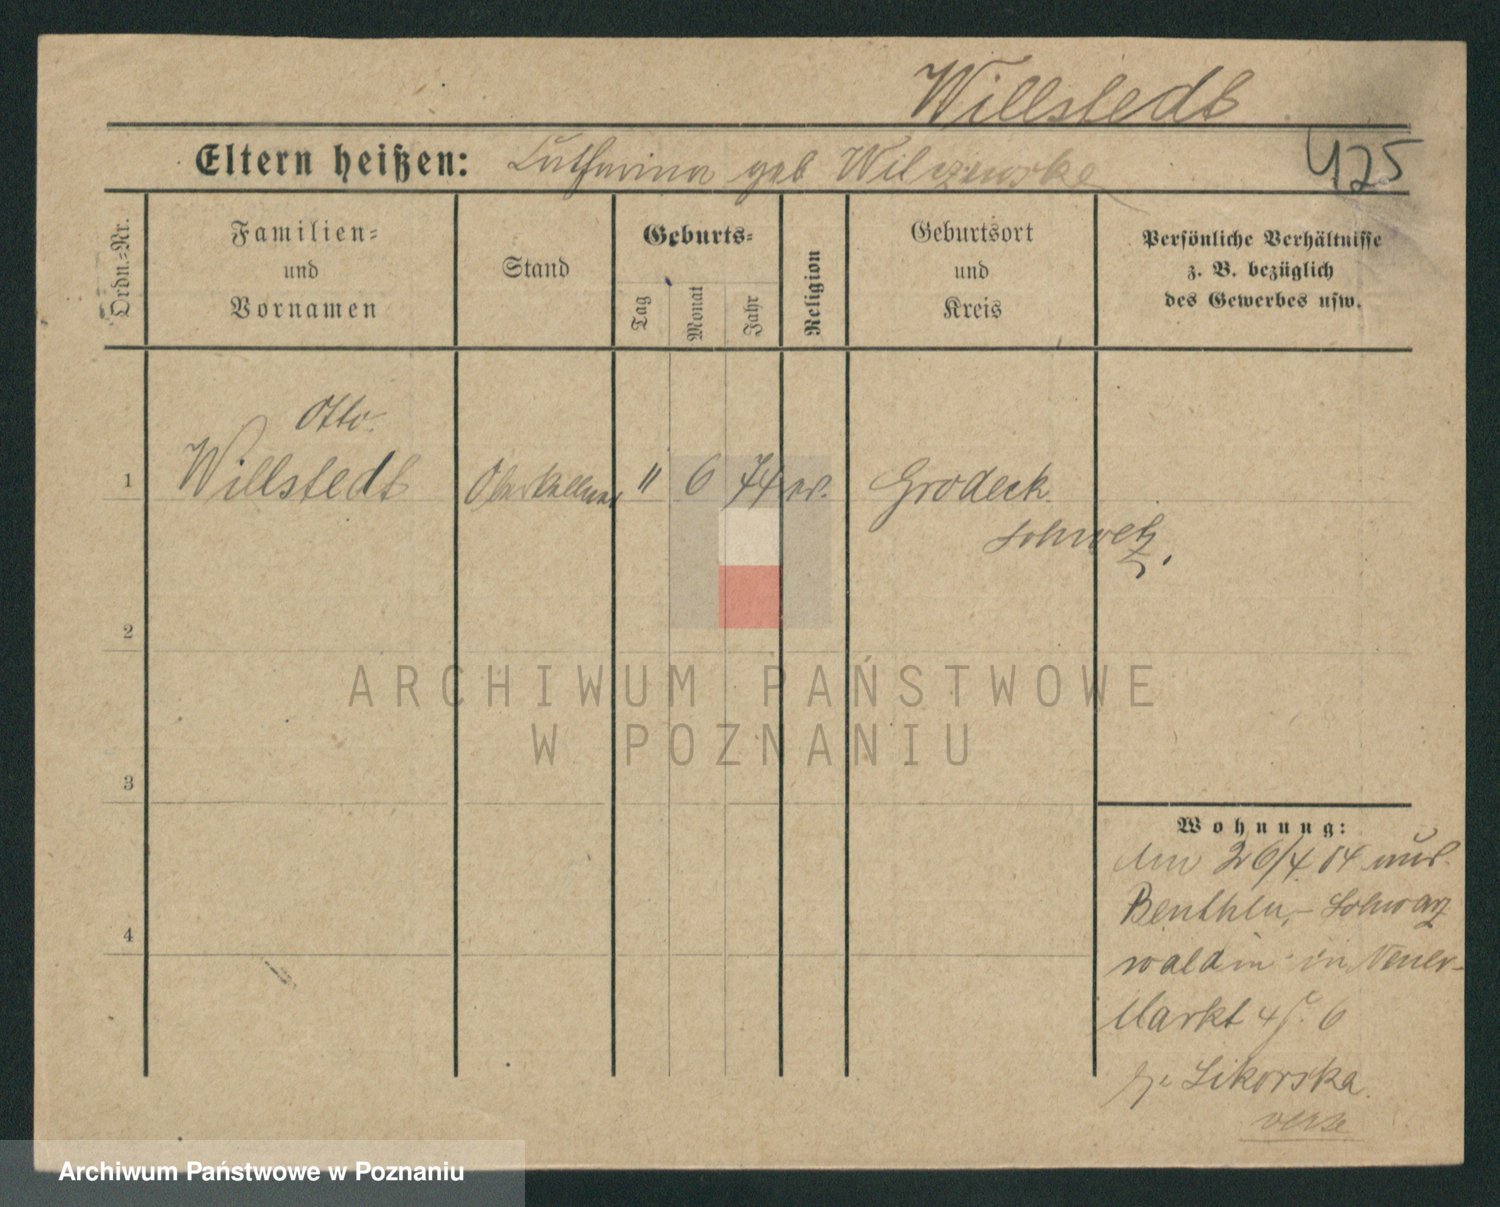 Willstedt
425
Eltern heißen: Katharina geb
Ordn.-Nr.
Familien-
und
Vornamen
Stand
Geburts-
Tag
Monat
Jahr
Religion
Geburtsort
und
Kreis
Persönliche Verhältnisse
z. B. bezüglich
des Gewerbes usw.
Otto
1 Willstedt Oberkellner 11 6 74 ev. Grodeck
Schwetz
2
3
4
Wohnung:
26/4. 04 aus
Beuthen, - Schwarz
wald in Neuer
Markt 4/5. 6
Sikorska
ARCHIWUM PAŃSTWOWE
W POZNANIU
Archiwum Państwowe w Poznaniu